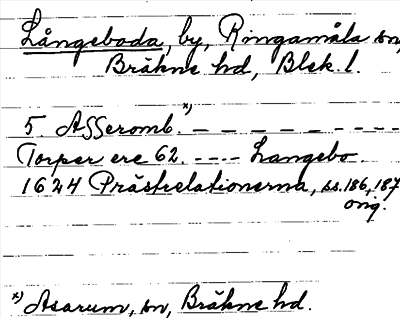 Långeboda, by, Ringamåla sn,
Bräkne hd, Blek. l.
5. Asseromb. x) – – – – – – – –
Torper ere 62. – – – – Langebo.
1624 Prästrelationerna, ss. 186, 187
orig.
x) Asarum, sn, Bräkne hd.